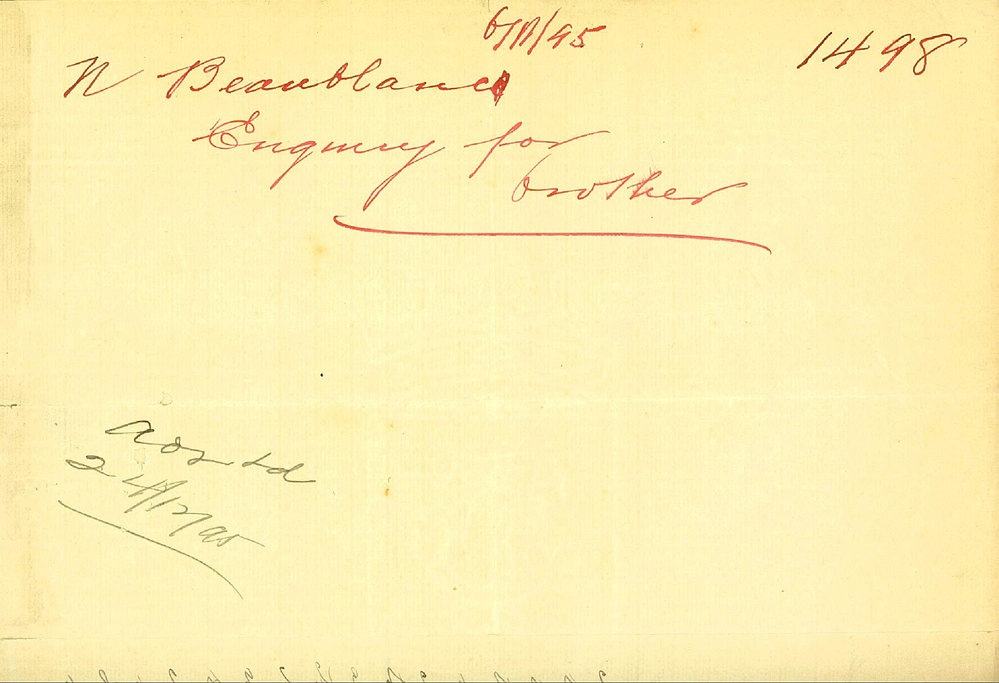 6/11/95
1498
N Beaublanc
Enquiry for
brother
24/12/95